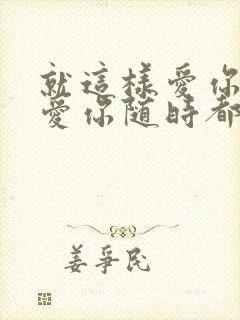 就這樣愛你
愛你隨時都
姜爭民